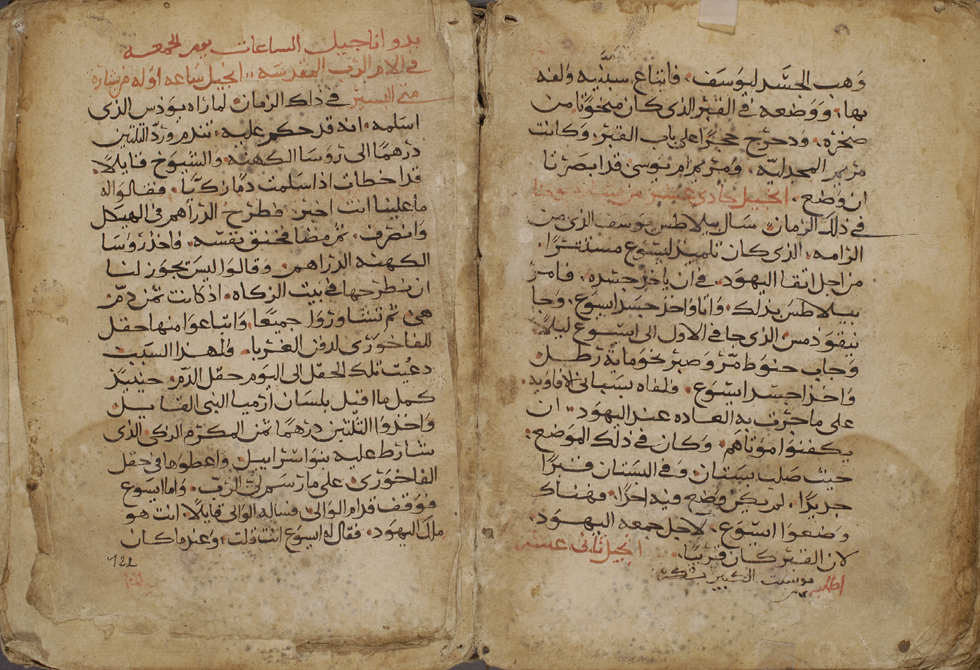 وهب الجسد ليوسف. فابتاع سبنيه ولفه
بها. ووضعه في القبر الذي كان منحوتا من
صخره. ودحرج حجرا على باب القبر. وكانت
مريم المجدليه. ومريم ام يوسي قد ابصرتا
اين وضع. انجيل حادي عشر من بشارة يوحنا
في ذلك الزمان سال بيلاطس يوسف الذي من
الرامه. الذي كان تلميذ ليسوع مستترا.
من اجل اتقا اليهود. في ان ياخذ جسده. فامر
بيلاطس بذلك. واتا واخذ جسد ايسوع. وجا
نيقودمس الذي جا في الاول الى ايسوع ليلا.
وجاب حنوط مر وصبر نحو مايه رطل
واخذا جسد ايسوع. ولفاه بسباني لافاويه
على ما جرت به العاده عند اليهود. ان
يكفنوا موتاهم. وكان في ذلك الموضع.
حيث صلب بستان. وفي البستان قبرا
جديدا. لم يكن وضع فيه احدا. فهناك
وضعوا ايسوع. لاجل جمعه اليهود.
لان القبر كان قريبا. انجيل ثاني عشر
بدو اناجيل الساعات يوم الجمعه
في الام الرب المقدسه انجيل ساعه اوله من بشاره
متى البشير في ذلك الزمان لما راه يودس الذي
اسلمه. انه قد حكم عليه. تندم ورد التلتين
درهما الى روسا الكهنه والشيوخ قايلا.
قد اخطات اذ اسلمت دما زكيا. فقالوا له
ما علينا انت اخبر. فطرح الدراهم في الهيكل
وانصرف. ثم مضا فخنق نفسه. واخذ روسا
الكهنه الدراهم. وقالوا ليس يجوز لنا
ان نطرحها في بيت الزكاه. اذ كانت ثمن دم
هي ثم تشاوروا جميعا. وابتاعوا منها حقل
للفاخوري لدفن الغربا. ولهذا السبب
دعيت تلك الحقل الى اليوم حقل الدم. حينيذ
كمل ما قيل بلسان ارميا النبي القايل
واخذوا التلتين درهما ثمن المكرم الزكي الذي
شارط عليه بنو اسراييل. واعطوها في حقل
الفاخوري. على ما رسم لي الرب. واما ايسوع
فوقف قدام الوالي. فساله الوالي قايلا. انت هو
ملك اليهود. فقال له ايسوع انت قلت. وعند ما كان